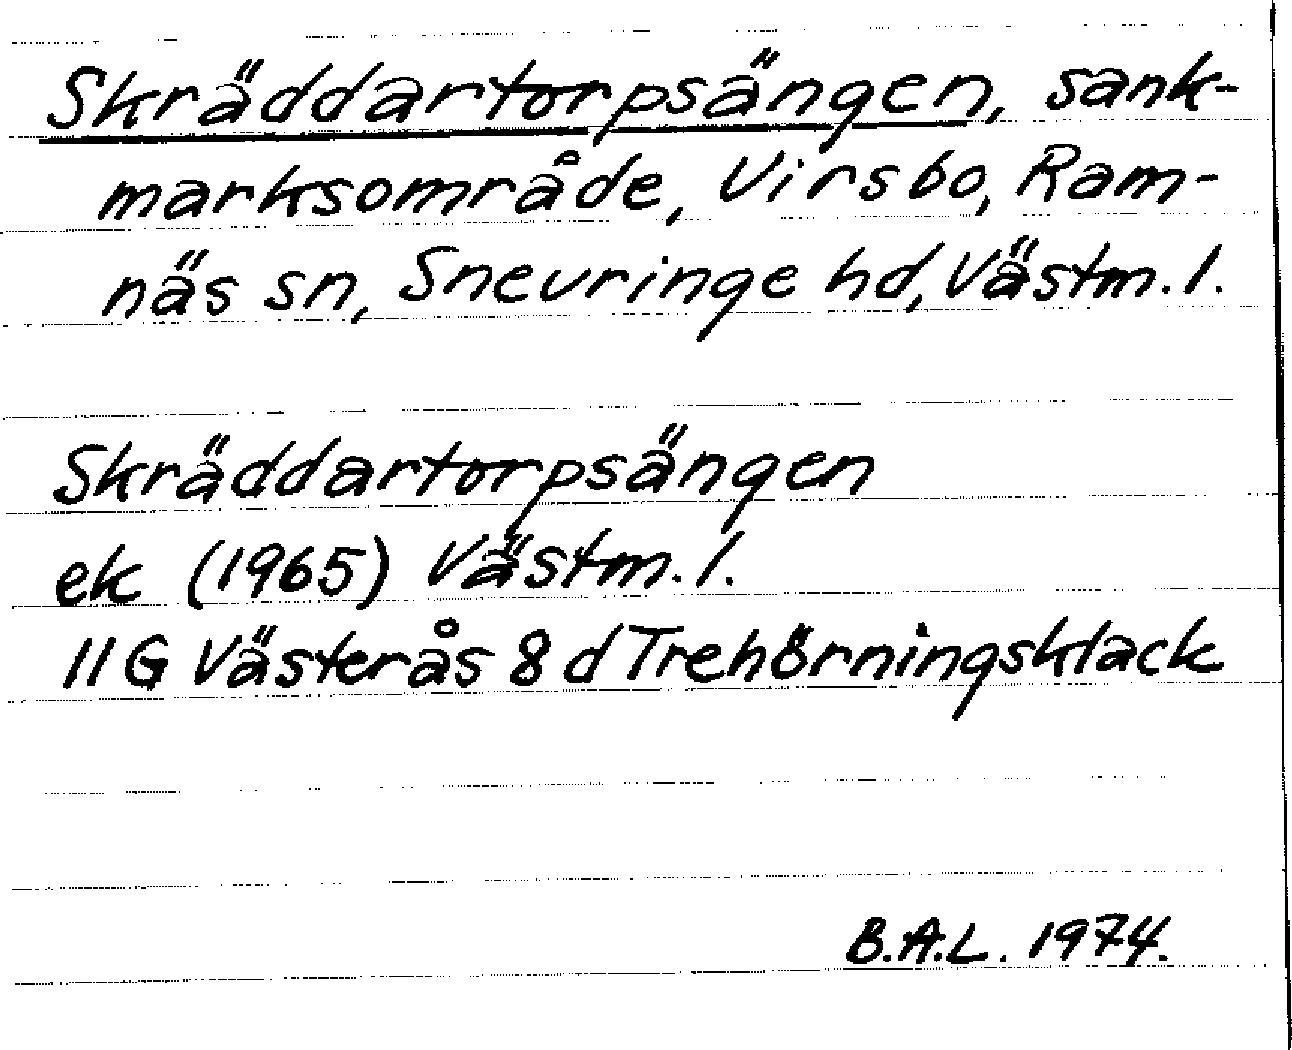 Skräddartorpsängen, sank-
marksområde, Virsbo, Ram-
näs sn, Snevringe hd, Västm. l.
Skräddartorpsängen
ek (1965) Västm. l.
11G Västerås 8 d Trehörningsklack
B.A.L. 1974.